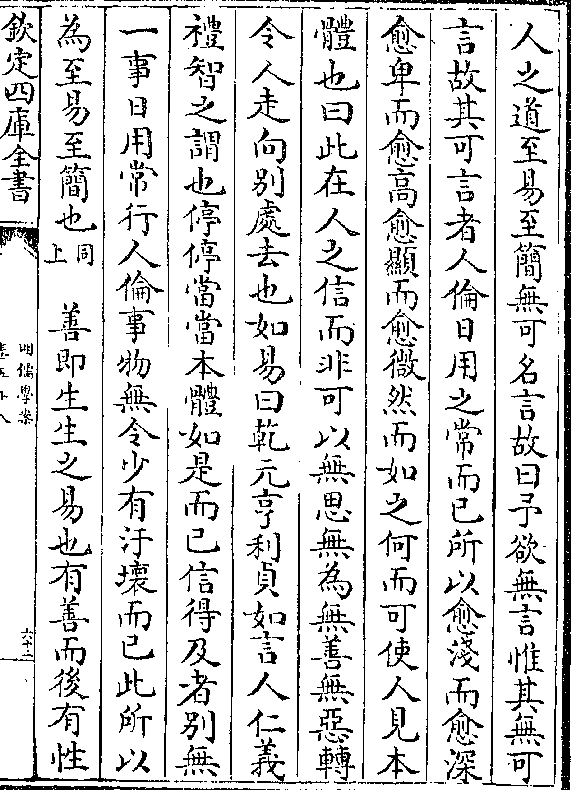 人之道至易至簡無可名言故曰予欲無言惟其無可
言故其可言者人倫日用之常而已所以愈淺而愈深
愈卑而愈高愈顯而愈微然而如之何而可使人見本
體也曰此在人之信而非可以無思無為無善無惡轉
令人走向别處去也如易曰乾元亨利貞如言人仁義
禮智之謂也停停當當本體如是而已信得及者别無
一事日用常行人倫事物無令少有汙壞而已此所以
為至易至簡也同上 善即生生之易也有善而後有性
欽定四庫全書
明儒學案
六十二